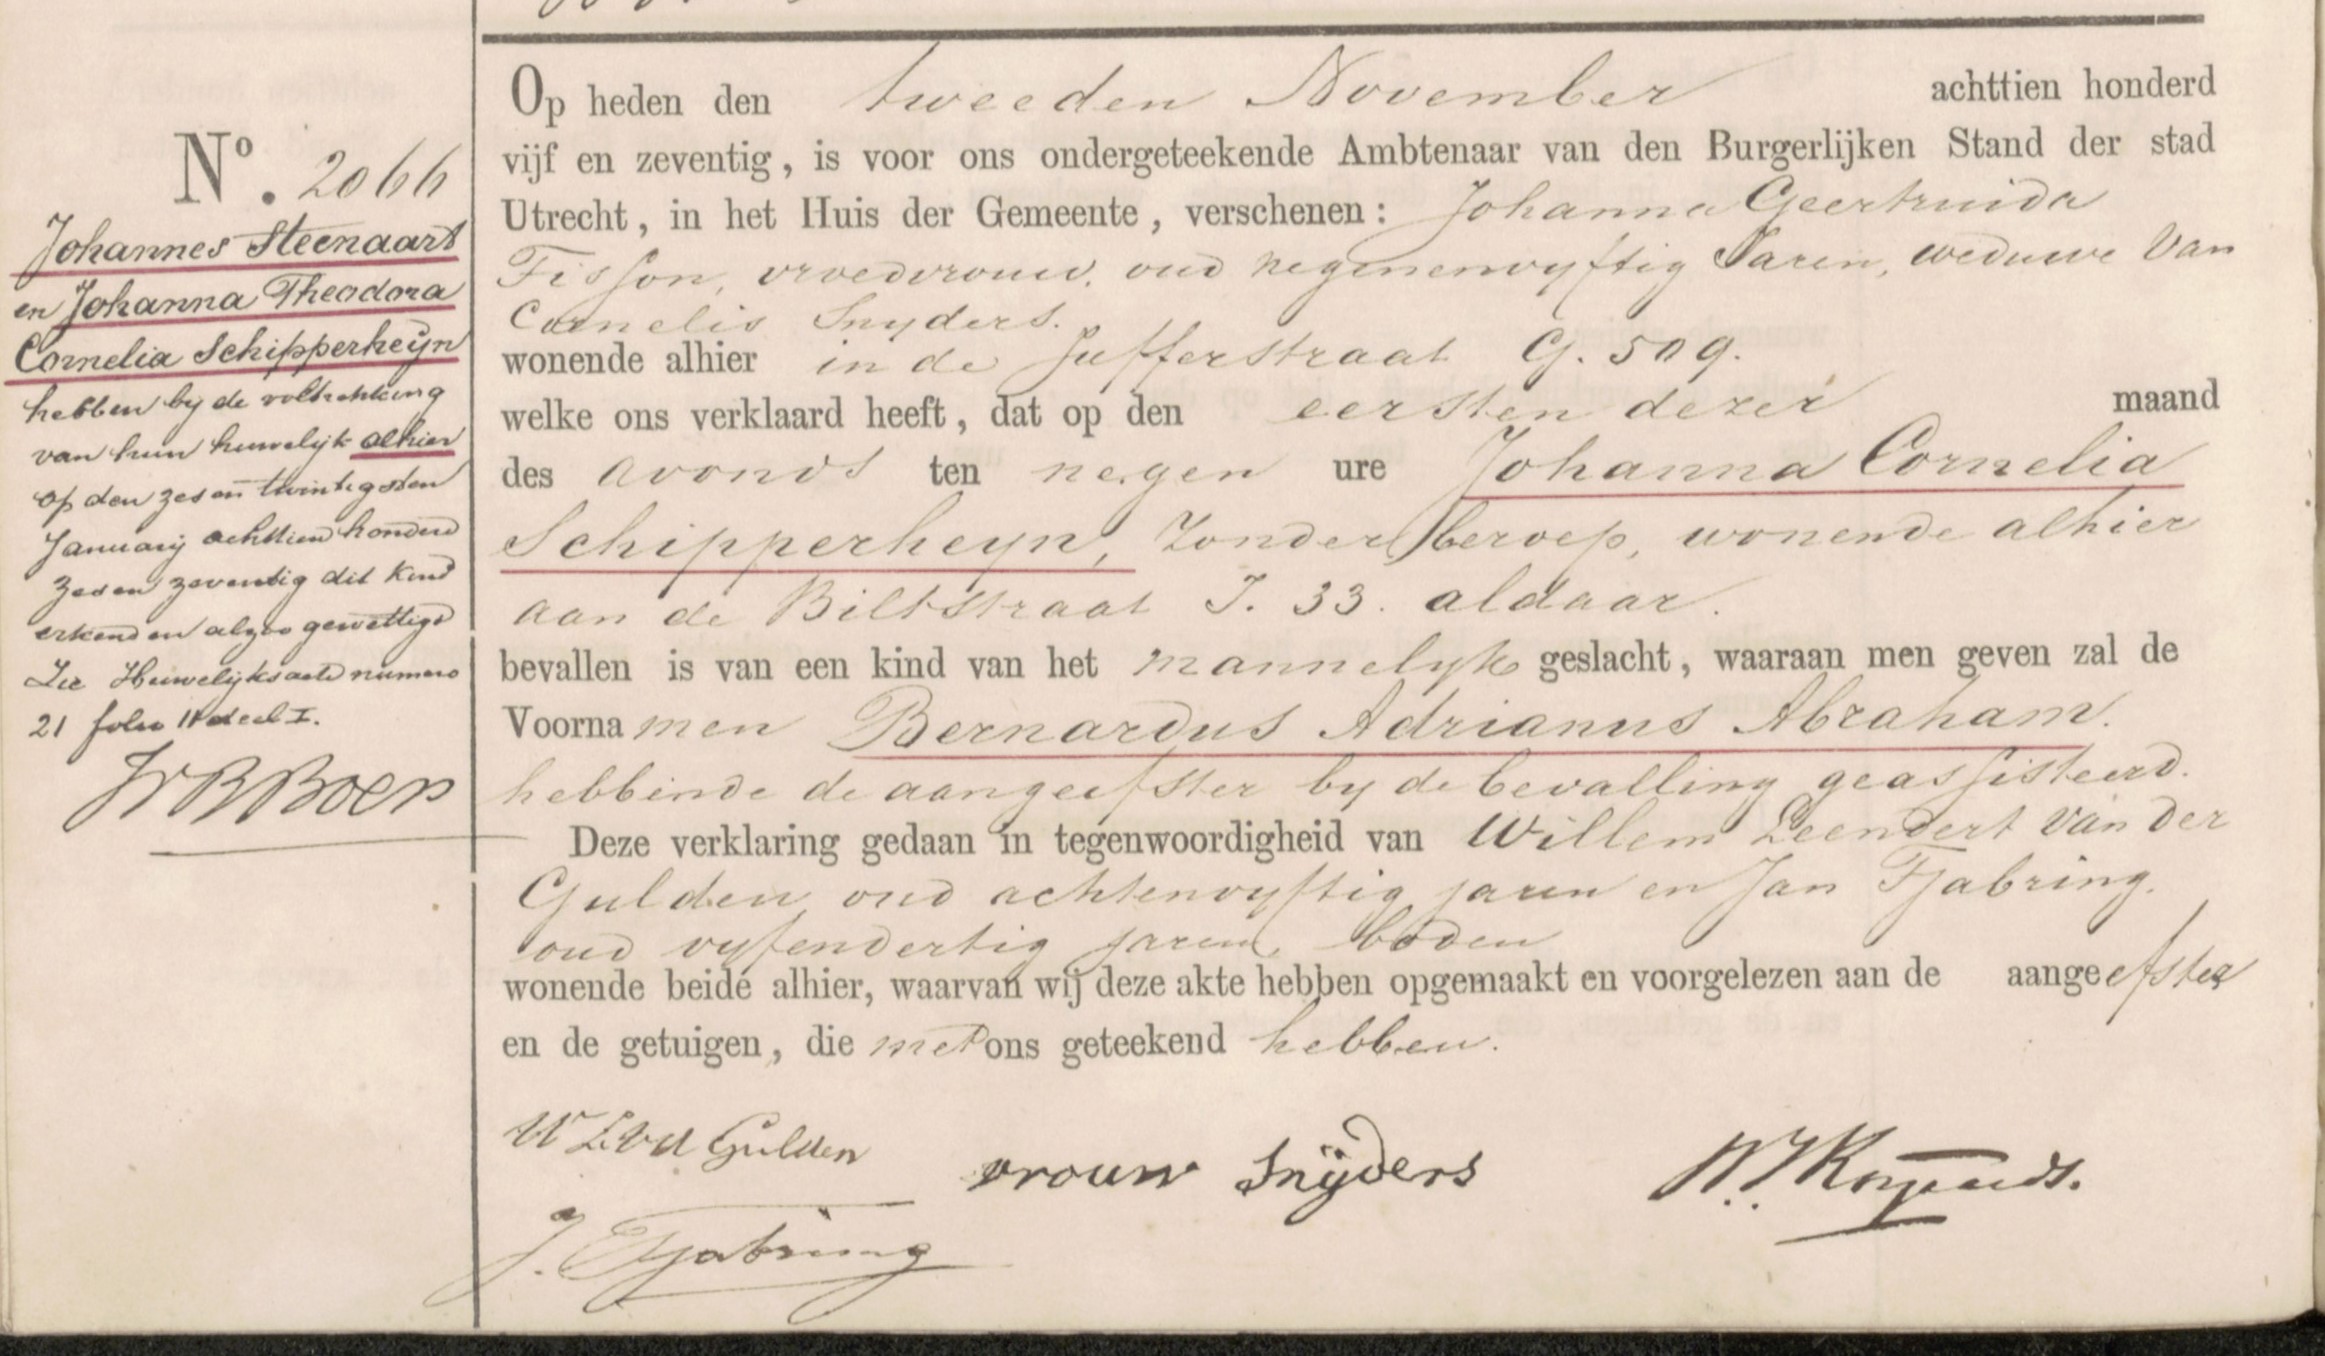 Nº. 2066
Johannes Steenaart
en Johanna Theodora
Cornelia Schipperheyn
hebben by de voltrekking
van hun huwelijk alhier
op den zes en twintigsten
January achttien honderd
zes en zeventig dit kind
erkend en alzoo gewettigd
Zie Huwelijksacte numero
21 folio 11 deel I.
Op heden den tweeden November achttien honderd
vijf en zeventig, is voor ons ondergeteekende Ambtenaar van den Burgerlijken Stand der stad
Utrecht, in het Huis der Gemeente, verschenen: Johanna Geertruida
Fisson, vroedvrouw, oud negenenvyftig Jaren, weduwe Van
Cornelis Snyders.
wonende alhier in de Jufferstraat G. 509.
welke ons verklaard heeft, dat op den eersten dezer maand
des avonds ten negen ure Johanna Cornelia
Schipperheyn, Zonder beroep, wonende alhier
aan de Biltstraat I. 33. aldaar.
bevallen is van een kind van het mannelyk geslacht, waaraan men geven zal de
Voornamen Bernardus Adrianus Abraham.
hebbende de aangeefster by de bevalling geassisteerd.
Deze verklaring gedaan in tegenwoordigheid van Willem Leendert Van der
Gulden oud achtenvyftig jaren en Jan Tjabring.
oud vyfendertig jaren, boden
wonende beide alhier, waarvan wij deze akte hebben opgemaakt en voorgelezen aan de aangeefster
en de getuigen, die met ons geteekend hebben.
W L vd Gulden
vrouw Snÿders
J. Tjabring